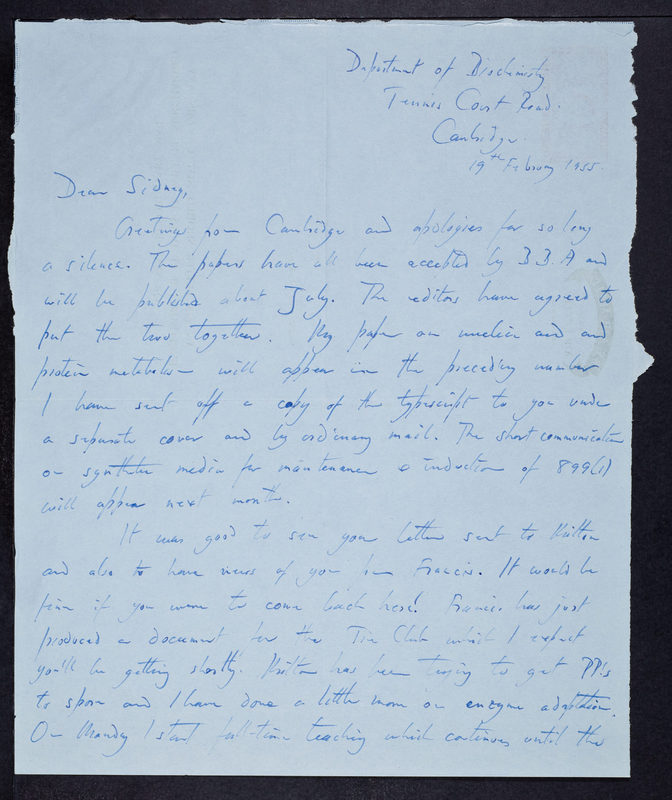 Department of Biochemistry
Tennis Court Road.
Cambridge.
19th February 1955.
Dear Sidney,
Greetings from Cambridge and apologies for so long
a silence. The papers have all been accepted by B.B.A and
will be published about July. The editors have agreed to
put the two together. My paper on nucleic acid and
protein metabolism will appear in the preceding number
I have sent off a copy of the typescript to you under
a separate cover and by ordinary mail. The short communication
on synthetic media for maintenance & induction of 899(1)
will appear next month.
It was good to see your letter sent to
and also to have news of you from Francis. It would be
fine if you were to come back here! Francis has just
produced a document for the Tie Club which I expect
you'll be getting shortly. has been trying to get PP's
to spore and I have done a little more on enzyme adaptation.
On Monday I start full-time teaching which continues until the